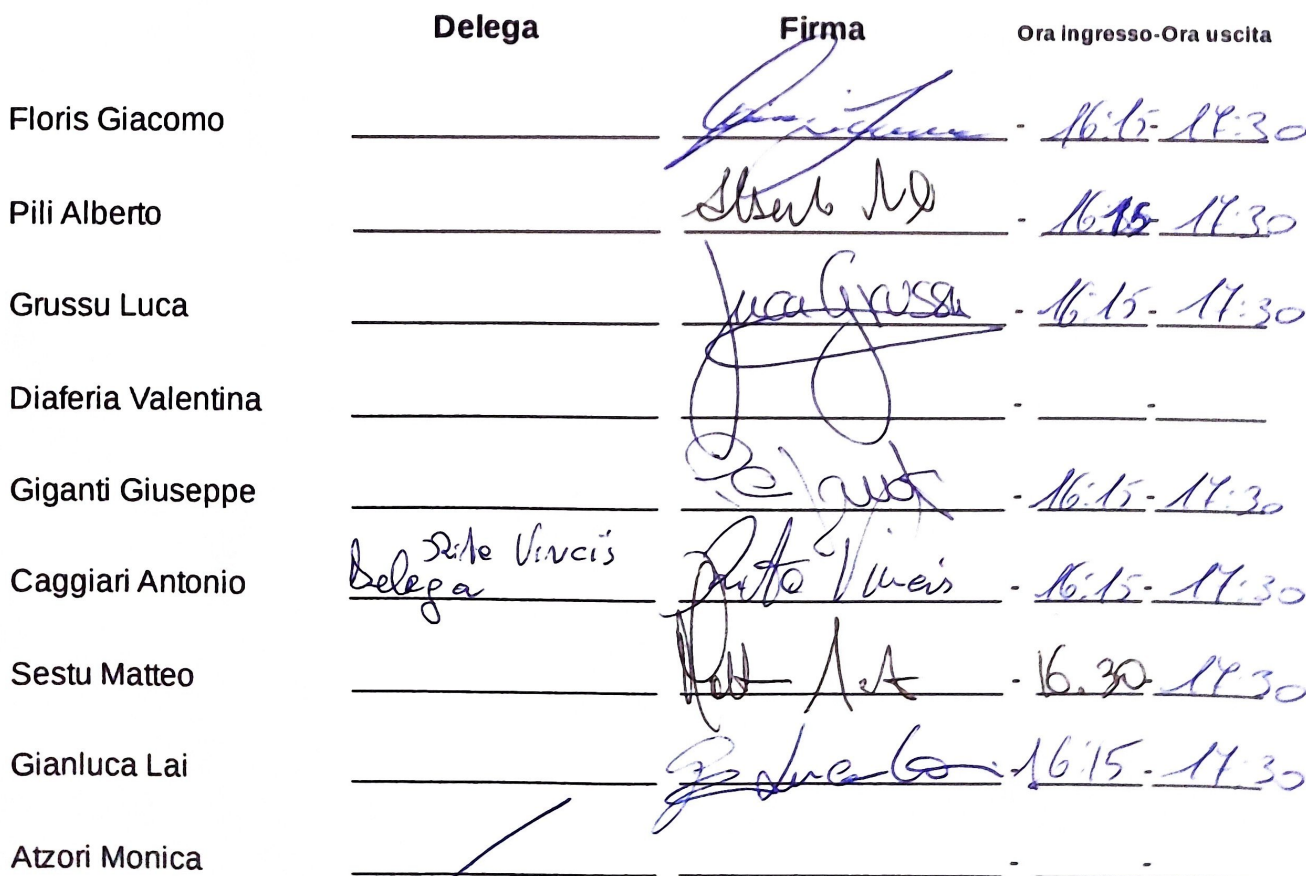 Delega Firma Ora ingresso-Ora uscita
Floris Giacomo - 16:15 - 17:30
Pili Alberto Alberto Pili - 16:15 - 17:30
Grussu Luca Luca Grussu - 16:15 - 17:30
Diaferia Valentina - -
Giganti Giuseppe - 16:15 - 17:30
Rita Vincis
Caggiari Antonio Delega Ritta Vincis - 16:15 - 17:30
Sestu Matteo - 16.30 - 17:30
Gianluca Lai - 16:15 - 17:30
Atzori Monica - -